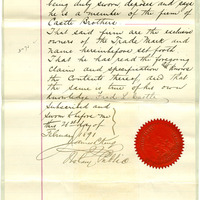 being duly sworn deposes and says
he is a member of the firm of
Castle Brothers
That said firm are the exclusive
owners of the Trade Mark and
name hereinbefore set forth
That he has read the foregoing
claim and specification & knows
the contents thereof, and that
the same is true of his own
knowledge Fred L Castle
Subscribed and
sworn to before me
this day of
February 1891
Notary Public